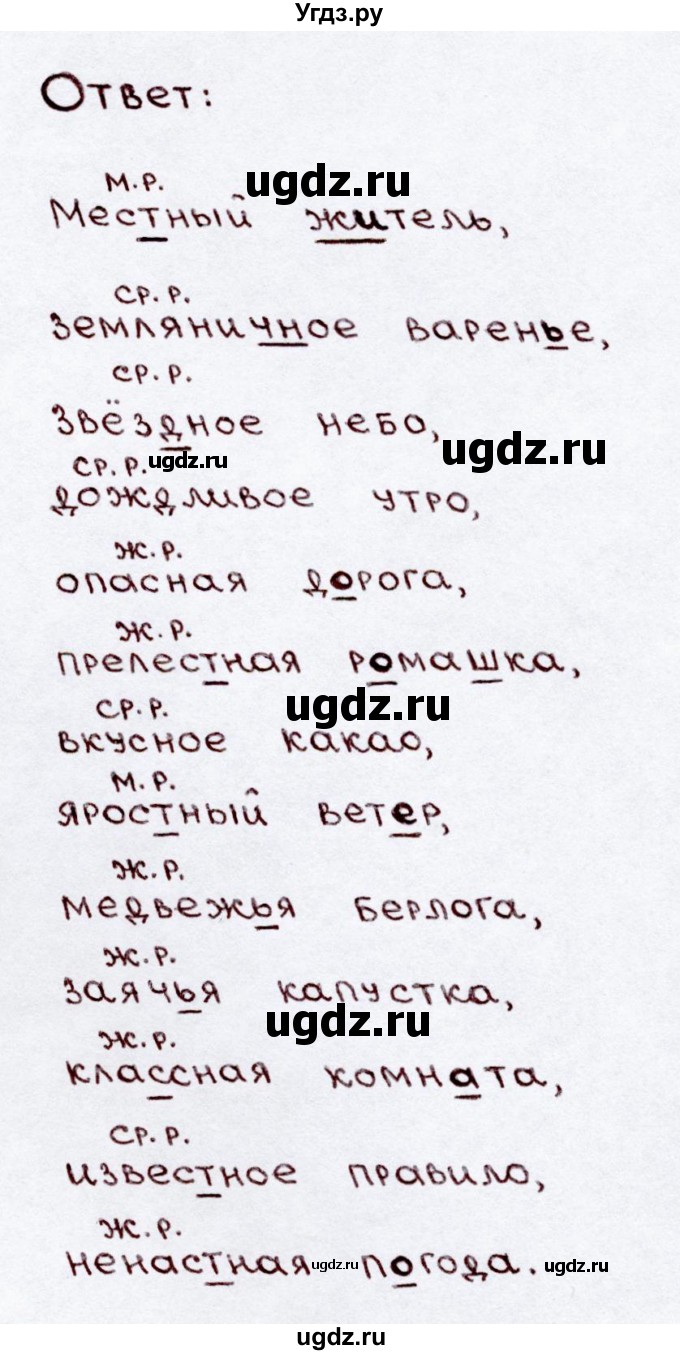 Угдз.ру
Ответ:
м.р. ugdz.ru
Местный житель,
ср.р.
земляничное варенье,
ср.р.
звёздное небо, ugdz.ru
ср.р. ugdz.ru
дождливое утро,
ж.р.
опасная дорога,
ж.р.
прелестная ромашка,
ср.р. ugdz.ru
вкусное какао,
м.р.
яростный ветер,
ж.р.
медвежья берлога,
ж.р.
заячья капустка,
ж.р. ugdz.ru
классная комната,
ср.р.
известное правило,
ж.р.
ненастная ugdz.ru погода. ugdz.ru
ugdz.ru